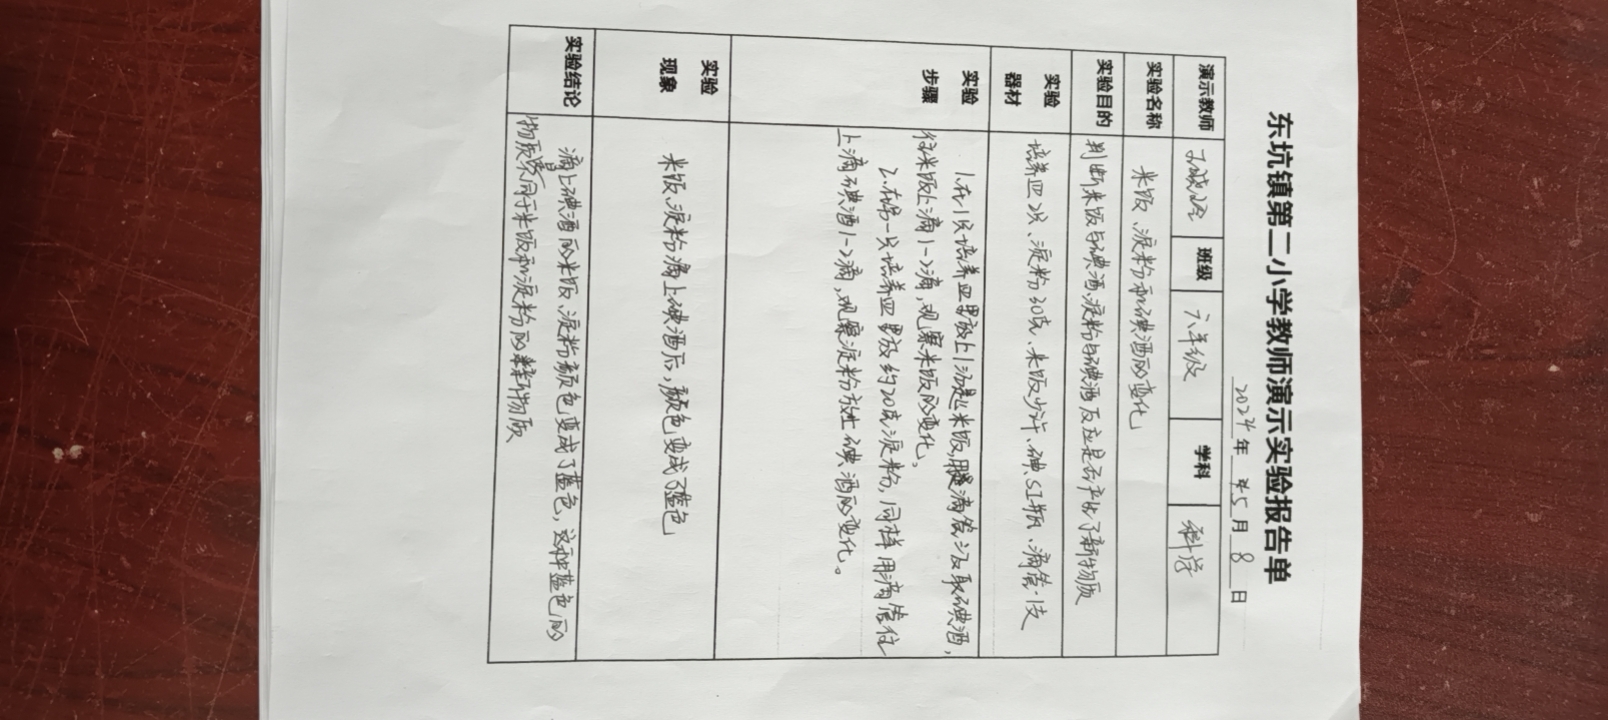 东坑镇第二小学教师演示实验报告单
2024年 5月 8日
演示教师 班级 六年级 学科 科学
实验名称 米饭、淀粉和碘酒的变化
实验目的 判断米饭与碘酒、淀粉与碘酒反应是否产生了新物质
实验
器材
培养皿2只、淀粉30克、米饭少许、碘酒1瓶、滴管1支
实验
步骤
1.在1只培养皿里放上1汤匙米饭,用滴管汲取碘酒,
往米饭上滴1-2滴,观察米饭的变化,
2.在另一只培养皿里放约20克淀粉,同样用滴管往
上滴碘酒1-2滴,观察淀粉放上碘酒的变化。
实验
现象
米饭、淀粉滴上碘酒后,颜色变成了蓝色
实验结论
滴上碘酒的米饭、淀粉颜色变成了蓝色,这种蓝色的
物质是不同于米饭和淀粉的新物质